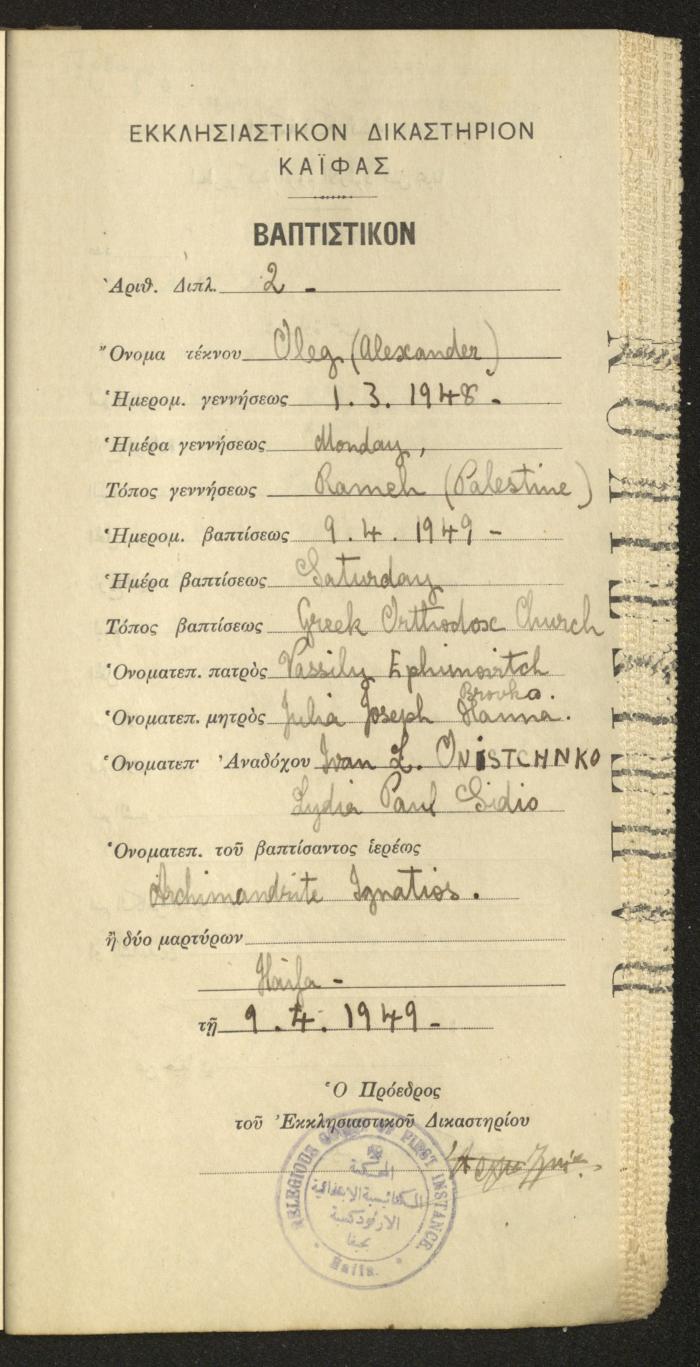 ΕΚΚΛΗΣΙΑΣΤΙΚΟΝ ΔΙΚΑΣΤΗΡΙΟΝ
ΚΑΪΦΑΣ
ΒΑΠΤΙΣΤΙΚΟΝ
Ἀριθ. Διπλ. 2 -
Ὄνομα τέκνου Oleg (Alexander)
Ἡμερομ. γεννήσεως 1.3.1948 -
Ἡμέρα γεννήσεως Monday,
Τόπος γεννήσεως Rameh (Palestine)
Ἡμερομ. βαπτίσεως 9.4.1949 -
Ἡμέρα βαπτίσεως Saturday
Τόπος βαπτίσεως Greek Orthodox Church
Ὀνοματεπ. πατρὸς Vassily Ephimovitch
Brovka.
Ὀνοματεπ. μητρὸς Julia Joseph Hanna.
Ὀνοματεπ· Ἀναδόχου Ivan L. ONISTCHNKO
Lydia Paul Sidio
Ὀνοματεπ. τοῦ βαπτίσαντος ἱερέως
Archimandrite Ignatios.
ἢ δύο μαρτύρων
Haifa -
τῇ 9.4.1949 -
Ὁ Πρόεδρος
τοῦ Ἐκκλησιαστικοῦ Δικαστηρίου
RELEGIOUS COURT OF FIRST INSTANCE.
المحكمة
الكنائسية الابتدائية
الارثوذكسية
بحيفا
Haifa.